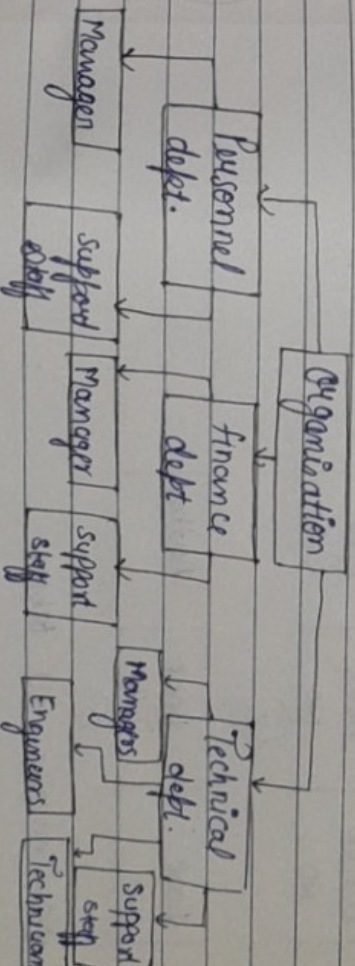 Organisation
Personnel
dept.
finance
dept
Technical
dept.
Manager
Support
Staff
Manager
Support
staff
Managers
Engineers
Support
staff